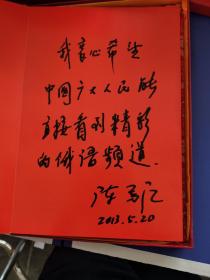 我衷心希望
中国广大人民能
直接看到精彩
的俄语频道.
2013.5.20